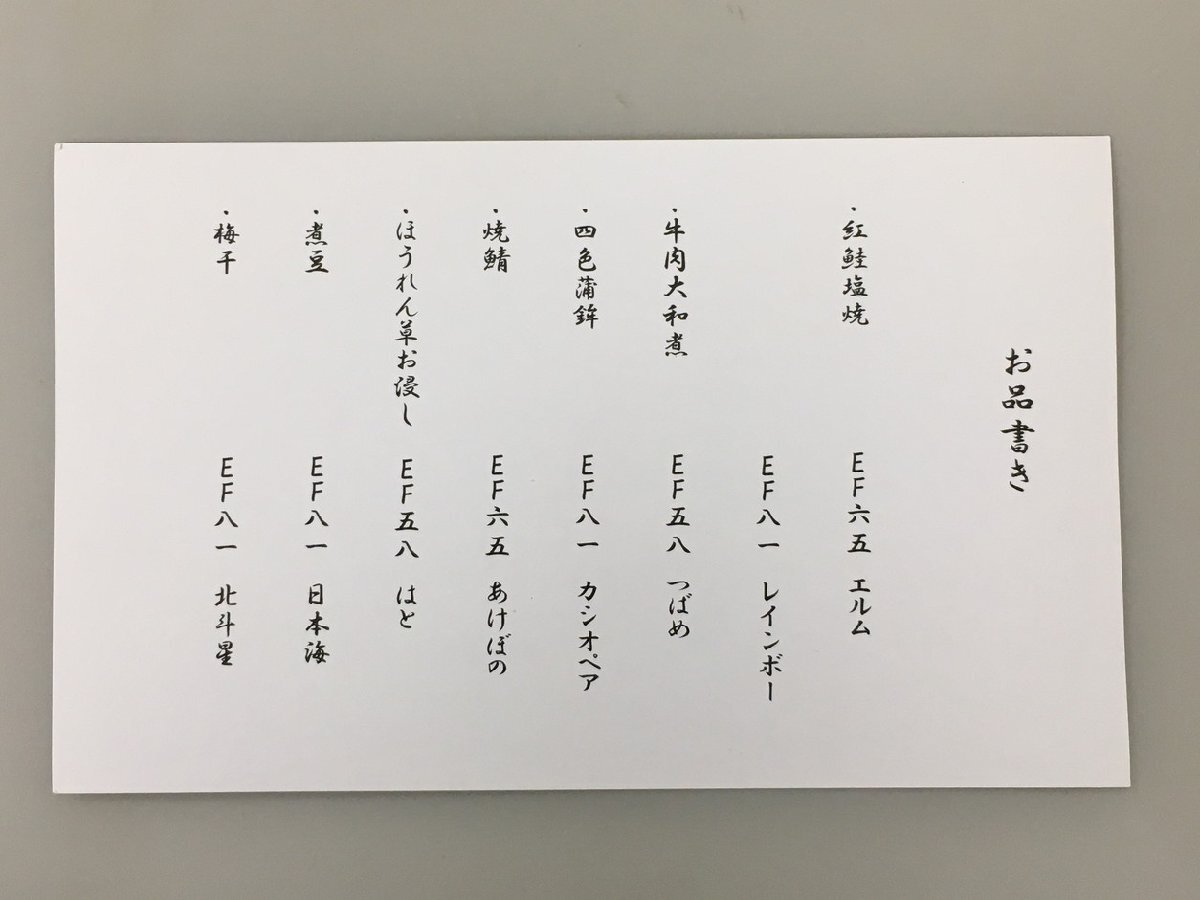 お品書き
・紅鮭塩焼 EF六五 エルム
EF八一 レインボー
・牛肉大和煮 EF五八 つばめ
・四色蒲鉾 EF八一 カシオペア
・焼鯖 EF六五 あけぼの
・ほうれん草お浸し EF五八 はと
・煮豆 EF八一 日本海
・梅干 EF八一 北斗星